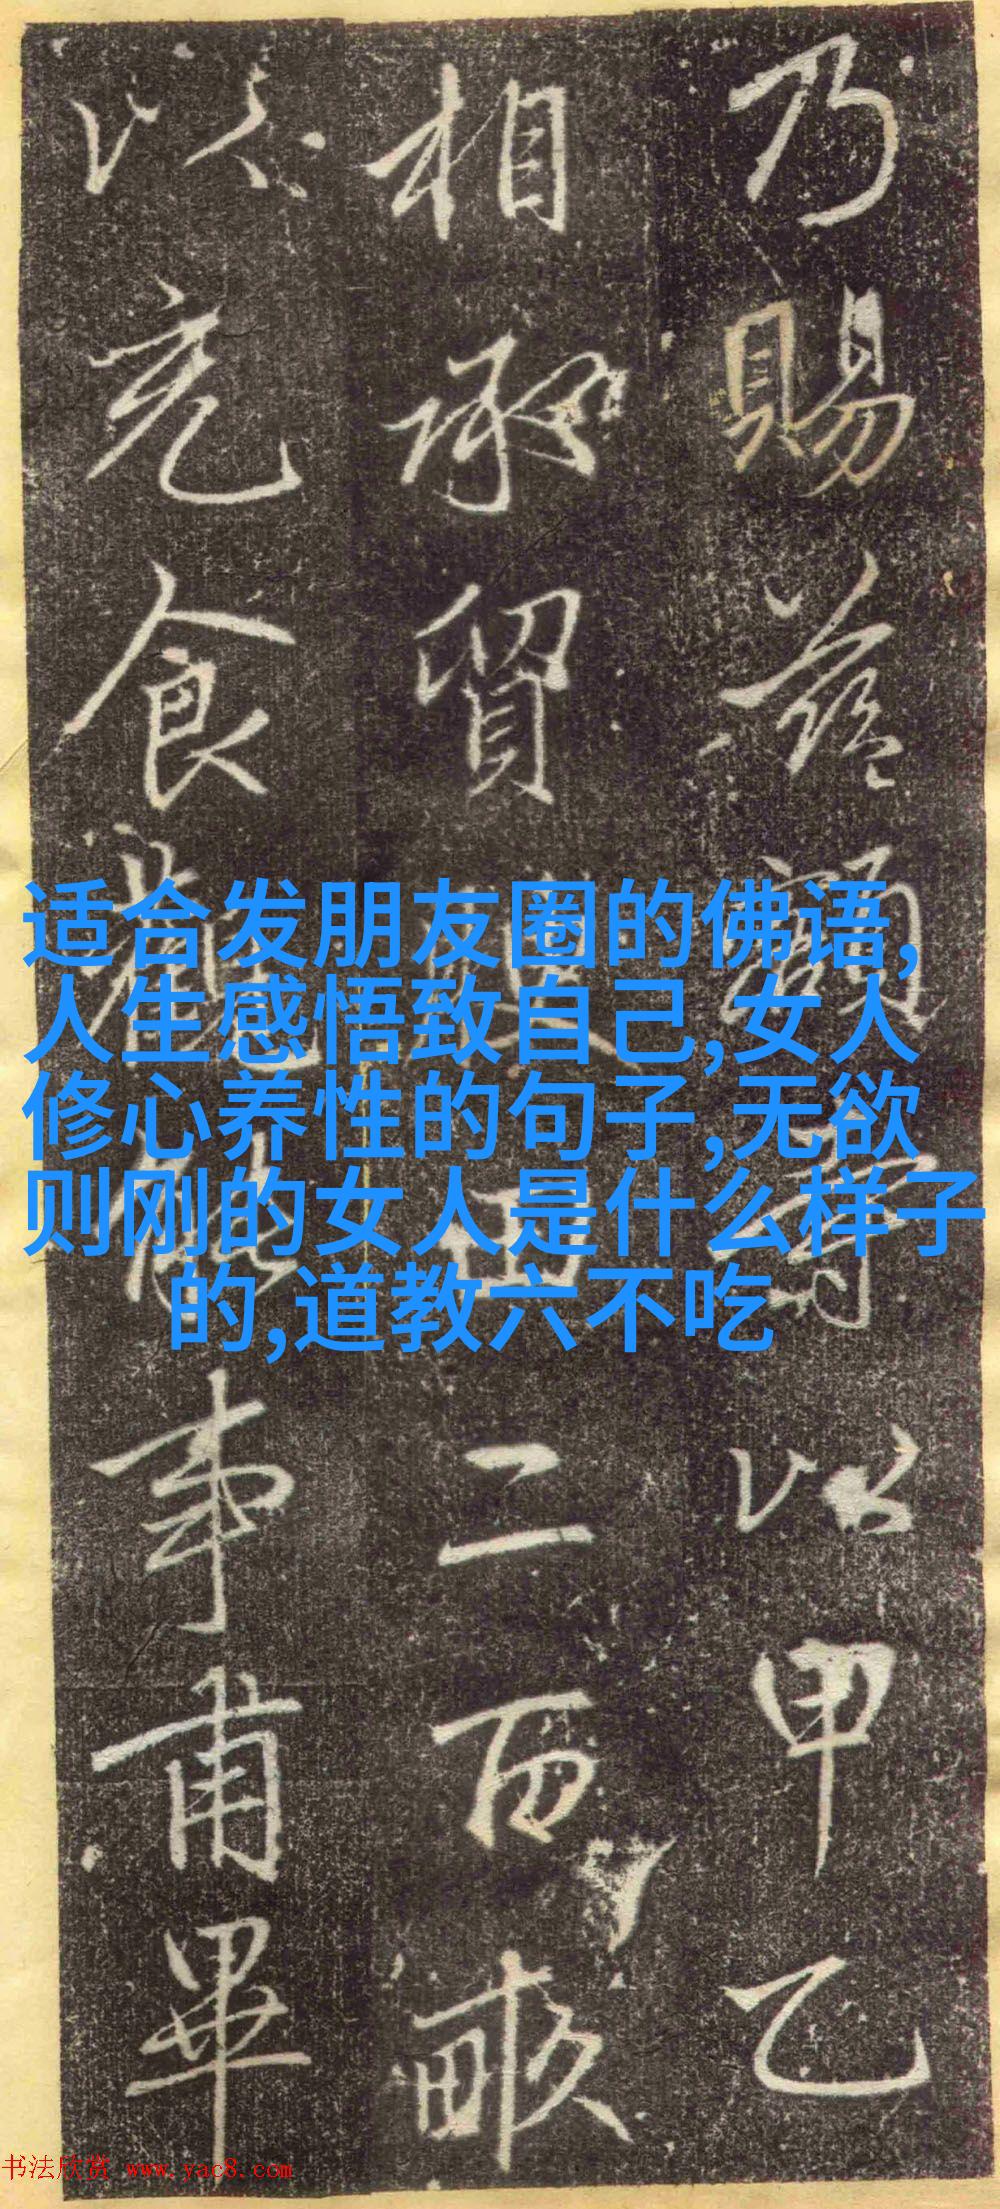 乃賜益謚寺以甲乙
相承貿 田二百畝
以充食 事甫畢
适合发朋友圈的佛语,
人生感悟致自己,女人
修心养性的句子,无欲
则刚的女人是什么样子
的,道教六不吃
书法欣赏 www.yac8.com